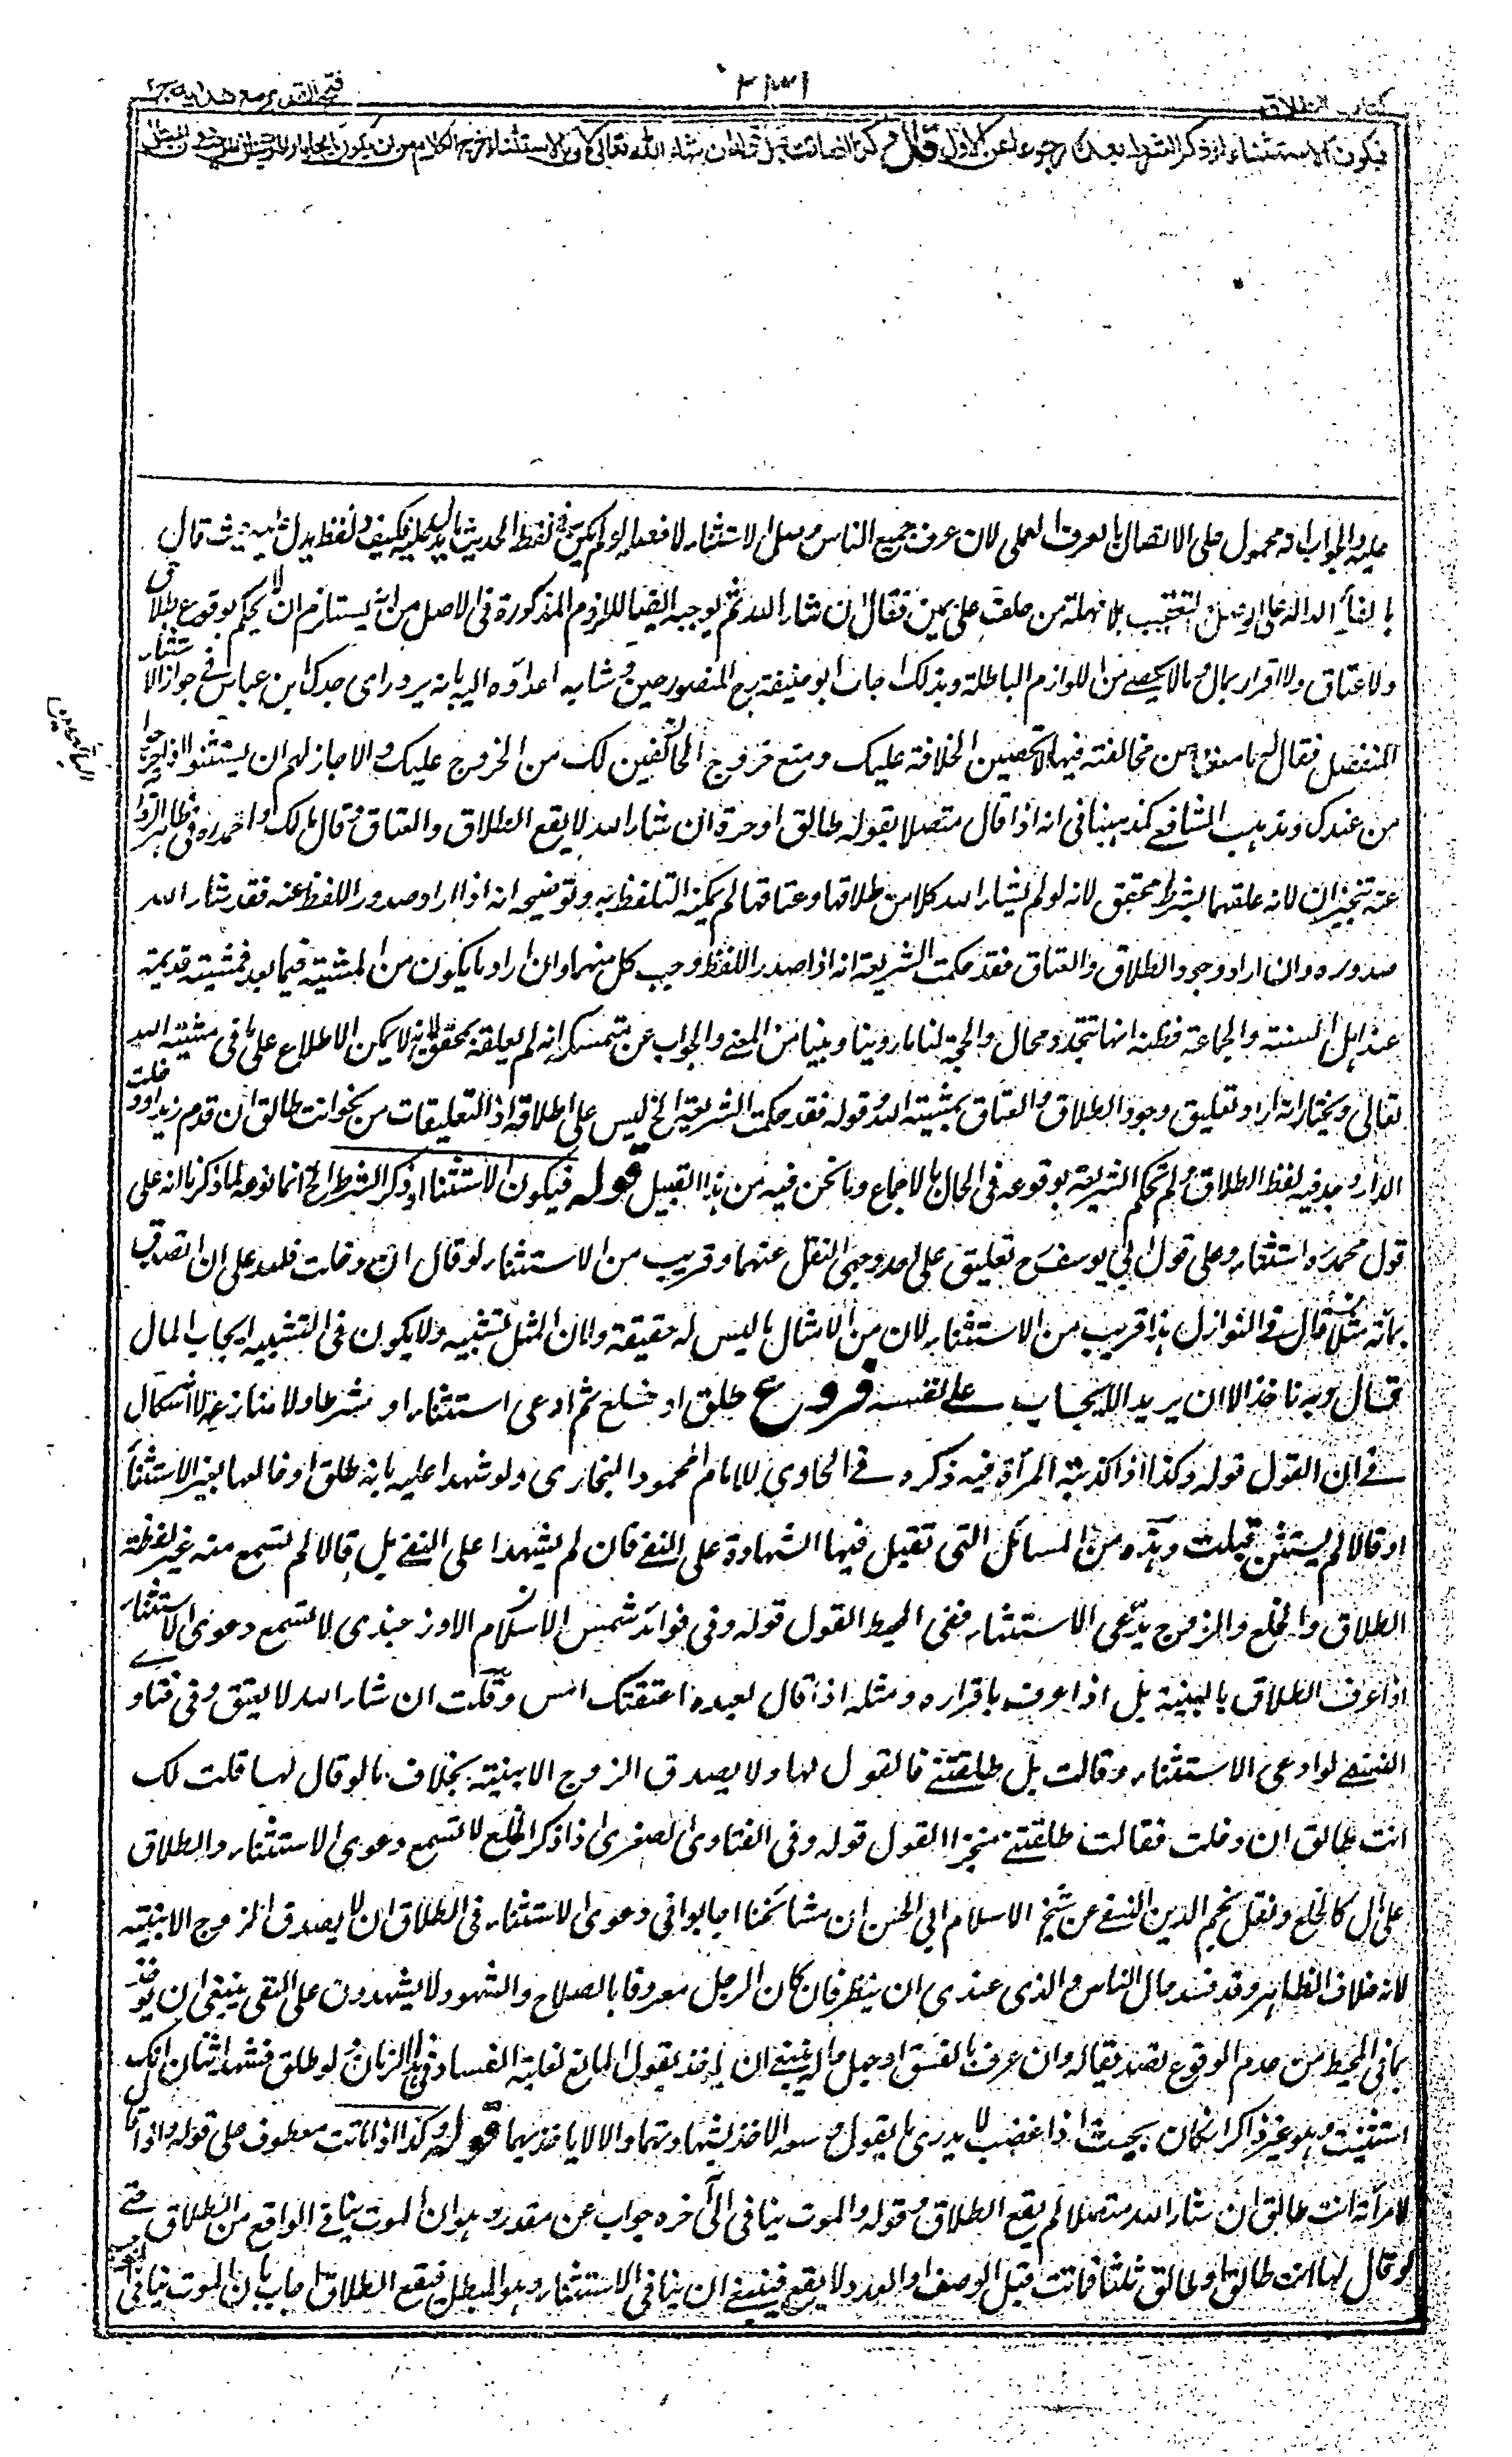 كتاب الطلاق
فتح القدير مع هداية ج٢
فيكون الاستثناء او ذكر الشرط بعده رجوعا عن الاول قال وكذا اذا ماتت قبل قوله ان شاء الله تعالى لان بالاستثناء خرج الكلام من ان يكون ايجابا والموت ينافي الموجب دون المبطل
عليه والجواب انه محمول على الاتصال بالعرف العملي لان عرف جميع الناس وصل الاستثناء لا فصله لو لم يكن في لفظ الحديث ما يدل عليه فكيف ولفظه يدل عليه حيث قال
بالفاء الدالة على الوصل والتعقيب بلا مهلة من حلف على يمين فقال ان شاء الله ثم يوجبه ايضا اللازم المذكورة في الاصل من انه يستلزم ان لا يحكم بوقوع طلاق
ولا عتاق ولا اقرار بمال وما لا يحصى من اللوازم الباطلة وبذلك اجاب ابو حنيفة رح المنصور حين وشا به اعداؤه اليه بانه يرد راى جدك ابن عباس في جواز الاستثناء
المنفصل فقال له يا من مخالفته فيها تحصين الخلافة عليك ومنع خروج الحالفين لك من الخروج عليك والا جاز لهم ان يستثنوا اذا خرجوا
من عندك ومذهب الشافعي كمذهبنا في انه اذا قال متصلا بقوله طالق او حرة ان شاء الله لا يقع الطلاق والعتاق وقال مالك واحمد ره في ظاهر الرواية
عنه تنجيزان لانه علقهما بشرط محقق لانه لو لم يشاء الله كلا من طلاقها وعتاقها لم يمكنه التلفظ به وتوضيحه انه اذا اراد صدور اللفظ عنه فقد شاء الله
صدوره وان اراد وجود الطلاق والعتاق فقد حكمت الشريعة انه اذا صدر اللفظ وجب كل منهما وان اراد ما يكون من المشية فيما بعد فمشيته قديمة
عند اهل السنة والجماعة فظنه انها تتجدد محال والحجة لنا ما روينا وبينا من المعنى والجواب عن متمسكه انه لم يعلقه بمحقق لانه لا يمكن الاطلاع على ما في مشية الله
تعالى ويختار انه اراد تعليق وجود الطلاق والعتاق بمشية الله وقوله فقد حكمت الشريعة الخ ليس على اطلاقه اذ التعليقات من نحو انت طالق ان قدم زيد او دخلت
الدار وجد فيه لفظ الطلاق ولم تحكم الشريعة بوقوعه في الحال بالاجماع وما نحن فيه من هذا القبيل قوله فيكون الاستثناء او ذكر الشرط الخ انما نوعه لما ذكرنا انه على
قول محمد ره استثناء وعلى قول ابي يوسف رح تعليق على احد وجهي النقل عنهما وقريب من الاستثناء لو قال ان دخلت فلله على ان اتصدق
بمائة مثلا قال في النوازل هذا قريب من الاستثناء لان من الامثال ما ليس له حقيقة ولان المثل تشبيه ولا يكون في التشبيه ايجاب المال
قال وبه ناخذ الا ان يريد الايجاب على نفسه فروع طلق او خلع ثم ادعى استثناء او شرطا ولا منازع لا اشكال
في ان القول قوله وكذا اذا كذبته المرأة فيه ذكره في الحاوي للامام محمود البخاري ولو شهدا عليه بانه طلق او خالعها بغير الاستثناء
او قالا لم يستثن قبلت وهذه من المسائل التي تقبل فيها الشهادة على النفي فان لم يشهدا على النفي بل قالا لم نسمع منه غير لفظة
الطلاق والخلع والزوج يدعى الاستثناء ففي المحيط القول قوله وفي فوائد شمس الاسلام الاوزجندي لا تسمع دعوى الاستثناء
اذا عرف الطلاق بالبينة بل اذا عرف باقراره ومثله اذا قال لعبده اعتقتك امس وقلت ان شاء الله لا يعتق وفي فتاوى
النسفي لو ادعى الاستثناء وقالت بل طلقتني فالقول لها ولا يصدق الزوج الا ببينة بخلاف ما لو قال لها قلت لك
انت طالق ان دخلت فقالت طلقتني منجزا القول قوله وفي الفتاوى الصغرى اذا ذكر الخلع لا تسمع دعوى الاستثناء والطلاق
على مال كالخلع ونقل نجم الدين النسفي عن شيخ الاسلام ابي الحسن ان مشائخنا اجابوا في دعوى الاستثناء في الطلاق ان لا يصدق الزوج الا ببينة
لانه خلاف الظاهر وقد فسد حال الناس والذي عندي ان ينظر فان كان الرجل معروفا بالصلاح والشهود لا يشهدون على النفي ينبغي ان يوخذ
بما في المحيط من عدم الوقوع تصديقا له وان عرف بالفسق او جهل حاله ينبغي ان لا يوخذ بقول المانع لغلبة الفساد في هذا الزمان ولو طلق فشهد اثنان انك
استثنيت وهو غير ذاكر ان كان بحيث اذا غضب لا يدري ما يقول وسعه الاخذ بشهادتهما والا لا ياخذ بهما قوله وكذا اذا ماتت معطوف على قوله واذا قال
لامرأته انت طالق ان شاء الله متصلا لم يقع الطلاق وقوله والموت ينافي الى آخره جواب عن مقدر وهو ان الموت ينافي الواقع من الطلاق حتى
لو قال لها انت طالق او طالق ثلثا فماتت قبل الوصف او العدد لا يقع فينبغي ان ينافي الاستثناء وهو المبطل فيقع الطلاق اجاب بان الموت ينافي الموجب